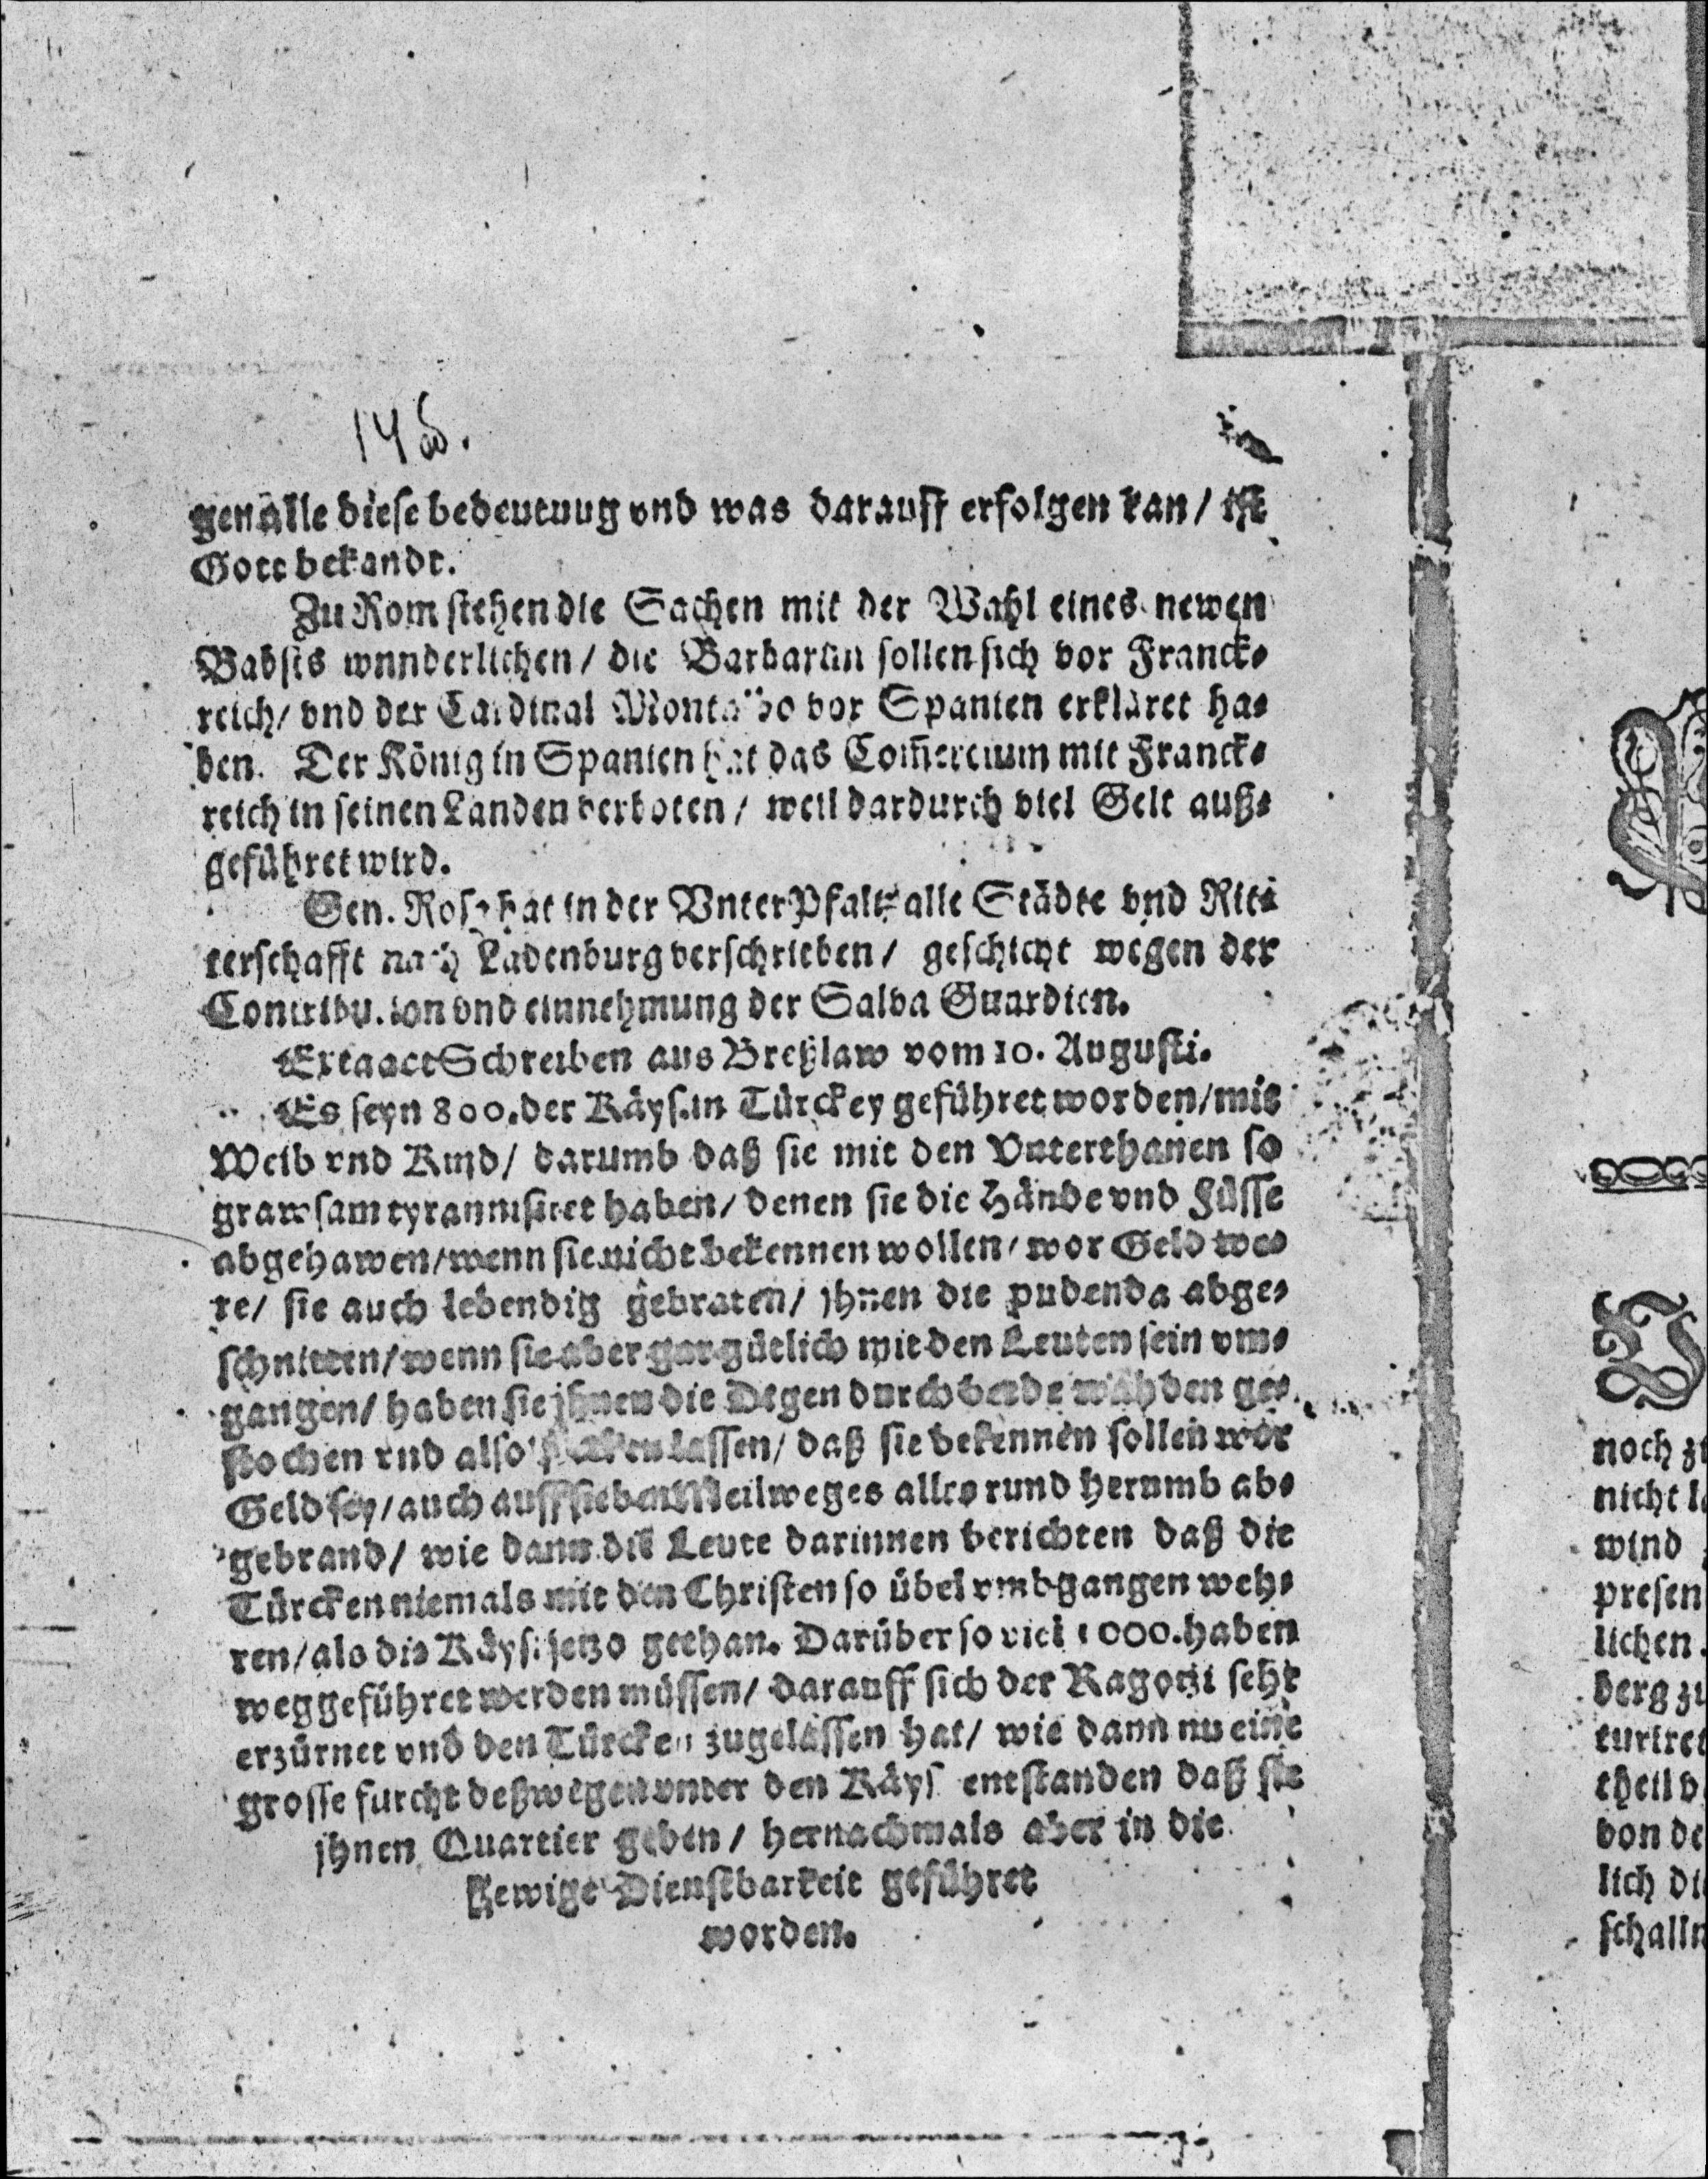 148.
gen alle diese bedeutuug vnd was darauff erfolgen kan / ist
Gott bekandt.
Zu Rom stehen die Sachen mit der Wahl eines newen
Babsts wnnderlichen / die Barbarini sollen sich vor Franck-
reich / vnd der Cardinal vor Spanien erkläret ha-
ben. Der König in Spanien hat das Com̃ercium mit Franck-
reich in seinen Landen verboten / weil dardurch viel Gelt auß-
geführet wird.
Gen. Rosa hat in der VnterPfaltz alle Städte vnd Rit-
terschafft nach Ladenburg verschrieben / geschicht wegen der
Contribution vnd einnehmung der Salva Guardien.
Extaact Schreiben aus Breßlaw vom 10. Augusti.
Es seyn 800. der Käys. in Türckey geführet worden / mit
Weib vnd Kind / darumb daß sie mit den Vnterthanen so
grawsam tyrannisiret haben / denen sie die Hände vnd Füsse
abgehawen / wenn sie nicht bekennen wollen / wor Geld we-
re / sie auch lebendig gebraten / jhnen die pudenda abge-
schnitten / wenn sie aber gar gütlich mit den Leuten sein vm-
gangen / haben sie jhnen die Degen durch beide wahden ge-
stochen vnd also stecken lassen / daß sie bekennen sollen wor
Geld sey / auch auff sieben Meilweges alles rund herumb ab-
gebrand / wie dann die Leute darinnen berichten daß die
Türcken niemals mit den Christen so übel vmbgangen weh-
ren / als die Käys. jetzo gethan. Darüber so viel 1000. haben
weggeführet werden müssen / darauff sich der Ragotzi sehr
erzürnet vnd den Türcken zugelassen hat / wie dann nu eine
grosse furcht deßwegen vnter den Käys entstanden daß sie
jhnen Quartier geben / hernachmals aber in die
Eewige Dienstbarkeit geführet
worden.
noch zu
nicht l
wind
presen
lichen.
berg zu
turiret
theil v
von de
lich di
schalln